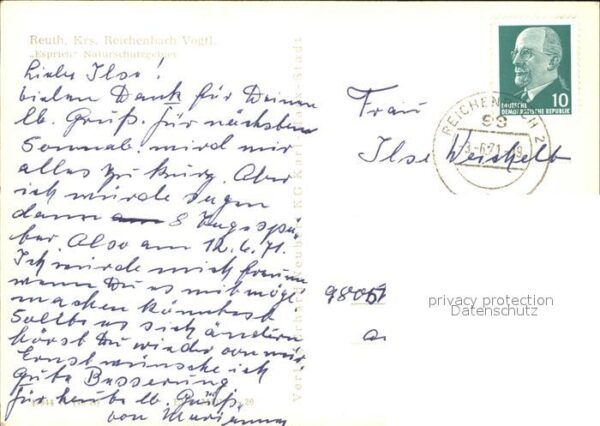 Reuth, Krs. Reichenbach Vogtl.
„Esprich" Naturschutzgebiet
Liebe Ilse!
vielen Dank für Deinen
lb. Gruß. Für nächsten
Sonnab. wird mir
alles zu kurz. Aber
ich würde sagen
dann 8 Tage spä-
ter. Also am 12.6.71.
Ich würde mich freuen
wenn Du es mit mögl.
machen könntest
Sollte es sich ändern
hörst Du wieder von mir
Ernst wünsche ich
gute Besserung
für heute lb. Grüße
von Marianne
Frau
Ilse Weichelt
9805
REICHENBACH 2
99
-3.-6.71.-9
DEUTSCHE
DEMOKRATISCHE REPUBLIK
10
privacy protection
Datenschutz